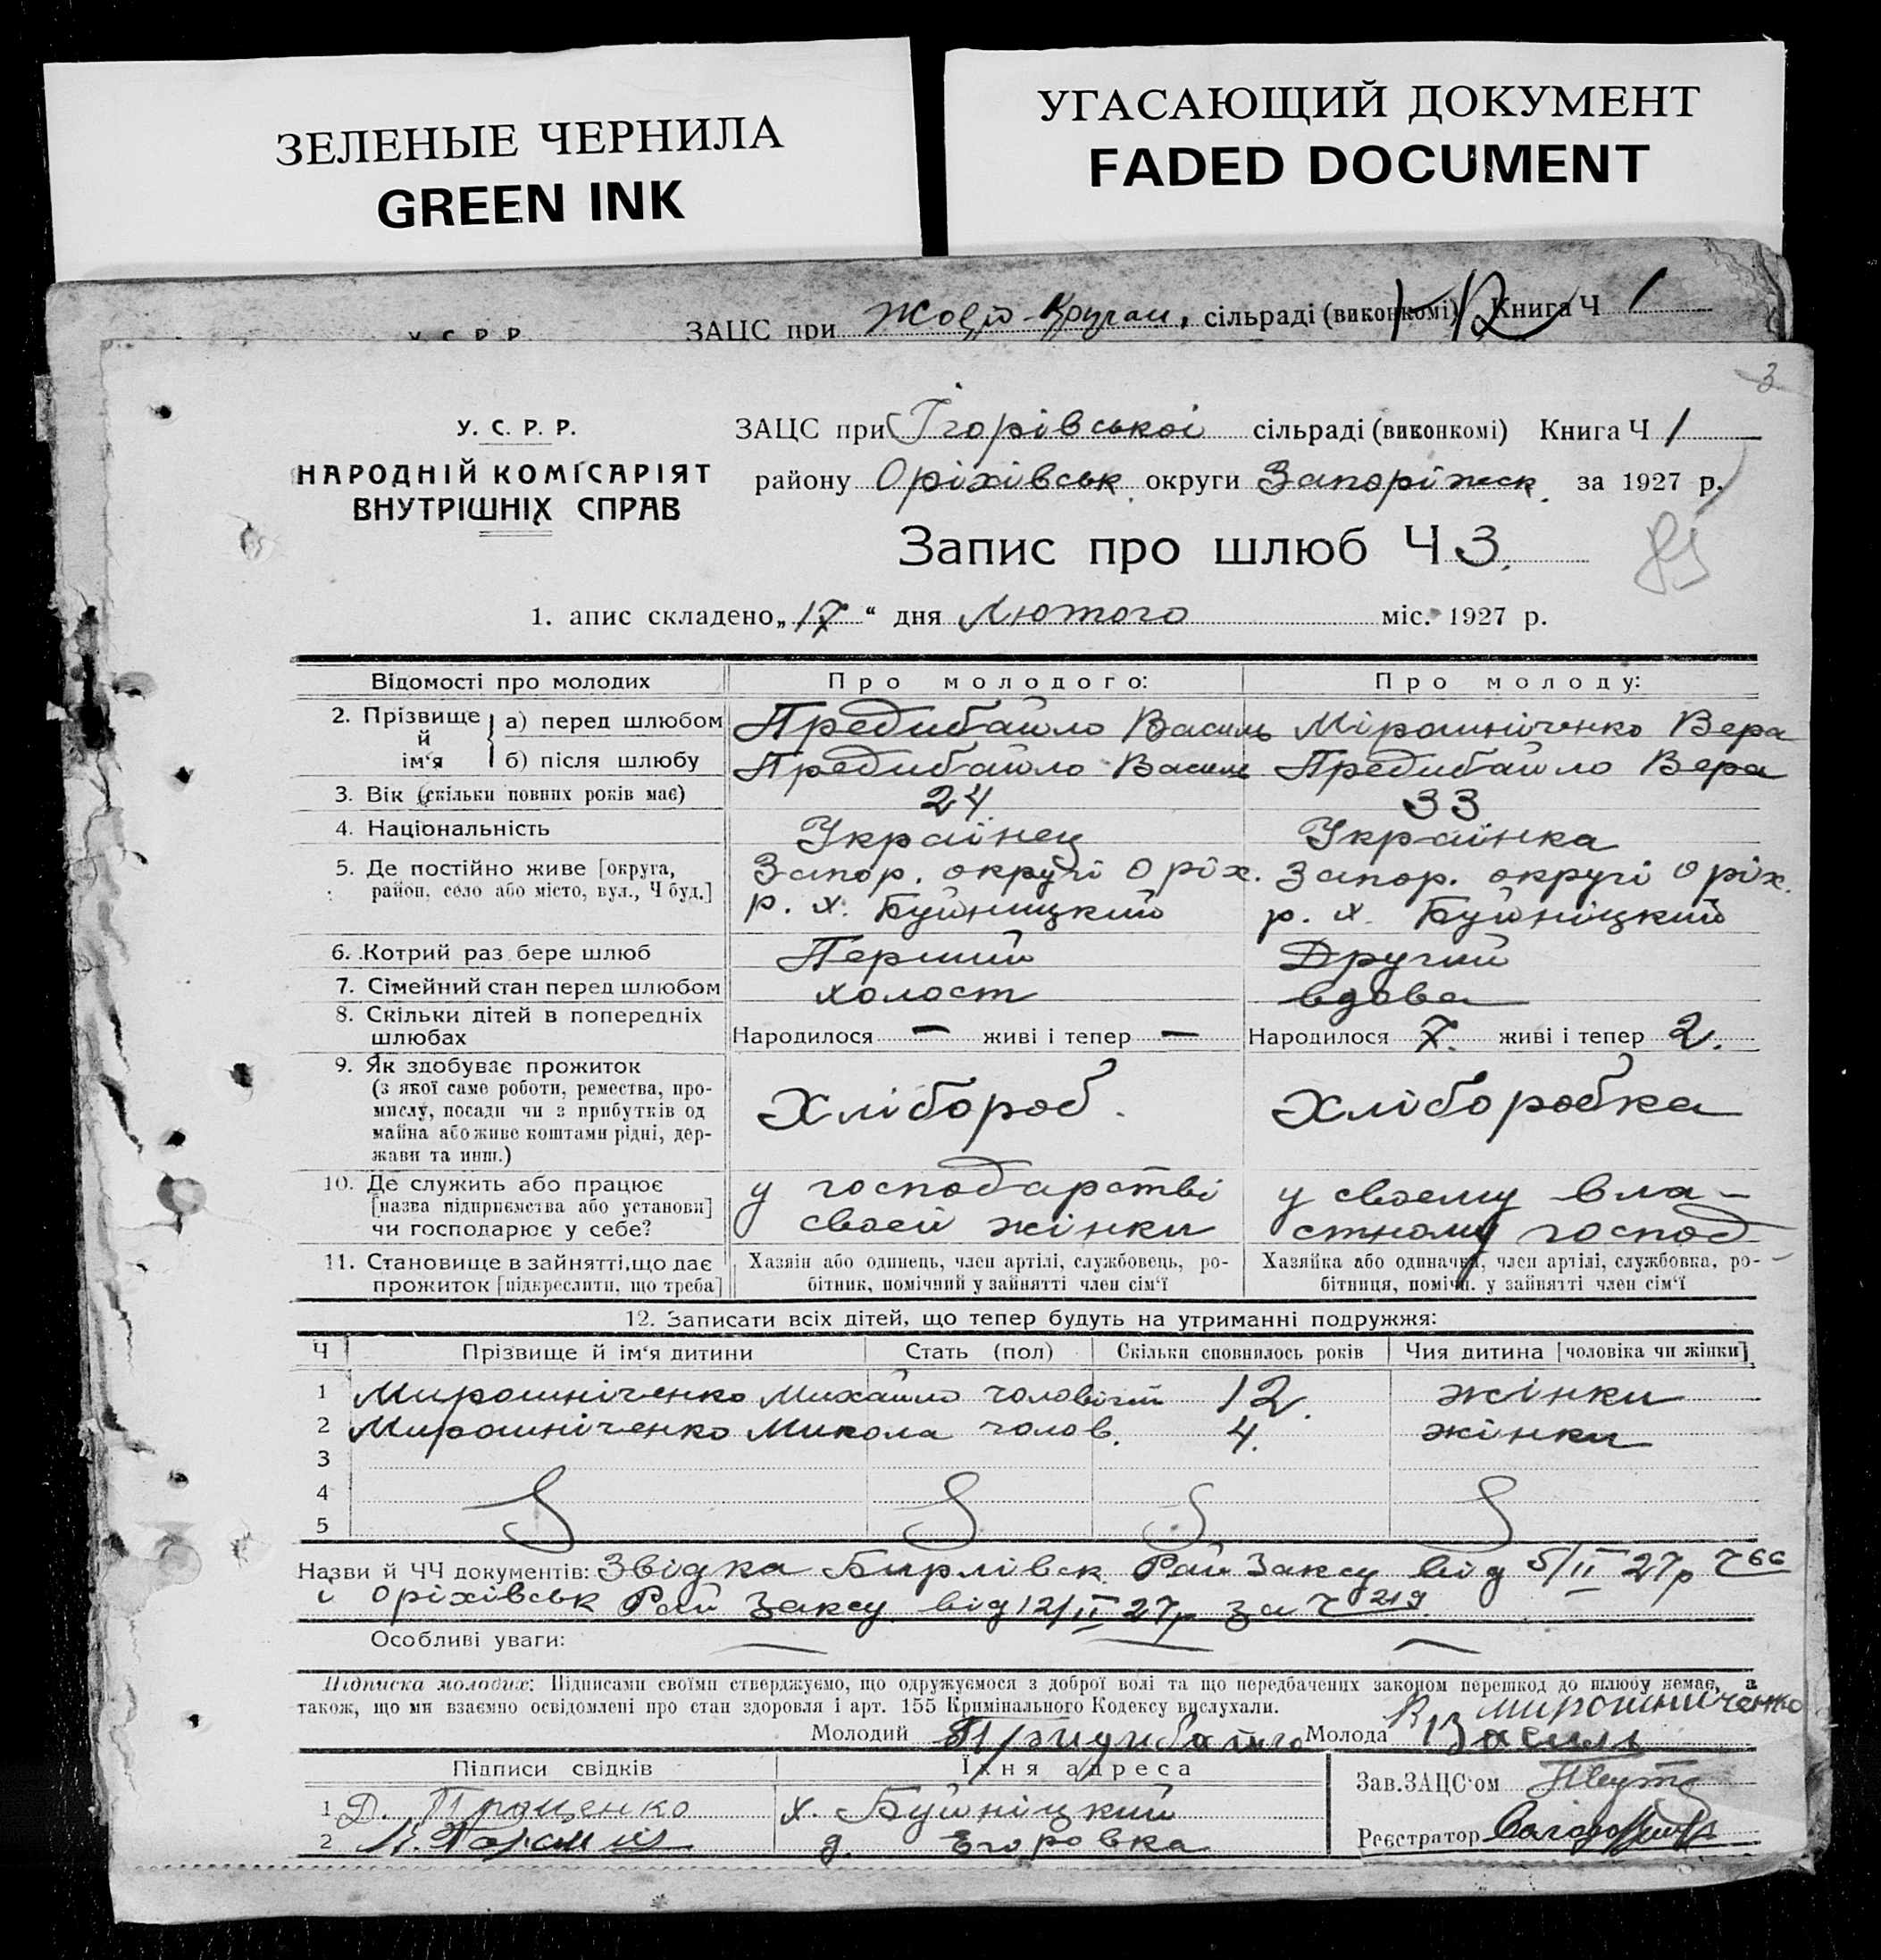 ЗЕЛЕНЫЕ ЧЕРНИЛА
GREEN INK
УГАСАЮЩИЙ ДОКУМЕНТ
FADED DOCUMENT
У.С.Р.Р. ЗАЦС при сільраді (виконкомі) Книга Ч 1
3
У. С. Р. Р.
НАРОДНІЙ КОМІСАРІЯТ
ВНУТРІШНІХ СПРАВ
ЗАЦС при Ігорівської сільраді (виконкомі) Книга Ч 1
району Оріхівськ. округи Запоріжск. за 1927 р.
Запис про шлюб Ч 3.
1. апис складено „17“ дня Лютого міс. 1927 р.
Відомості про молодих Про молодого: Про молоду:
2. Прізвище й ім‘я а) перед шлюбом Предибайло Василь Мірошніченко Вера
б) після шлюбу Предибайло Василь Предибайло Вера
3. Вік (скільки повних років має) 24 33
4. Національність Украінец Украінка
5. Де постійно живе [округа, район, село або місто, вул., Ч буд.] Запор. округі Оріх. Запор. округі Оріх.
р. х. Буйницкий р. х. Буйніцкий
6. Котрий раз бере шлюб Перший Другий
7. Сімейний стан перед шлюбом холост вдова
8. Скільки дітей в попередніх шлюбах Народилося — живі і тепер — Народилося 7. живі і тепер 2.
9. Як здобуває прожиток
(з якої саме роботи, ремества, про-
мислу, посади чи з прибутків од
майна або живе коштами рідні, дер-
жави та инш.)
Хлібороб. Хліборобка
10. Де служить або працює
[назва підприємства або установи]
чи господарює у себе?
у господарстві своей жінки
у своему вла-
стному господ-
11. Становище в зайнятті, що дає
прожиток [підкреслити, що треба]
Хазяїн або одинець, член артілі, службовець, ро-
бітник, помічний у зайнятті член сім‘ї
Хазяйка або одиначка, член артілі, службовка, ро-
бітниця, помічн. у зайнятті член сім‘ї
12. Записати всіх дітей, що тепер будуть на утриманні подружжя:
Ч Прізвище й ім‘я дитини Стать (пол) Скільки сповнилось років Чия дитина [чоловіка чи жінки]
1 Мирошніченко Михайло чоловічій 12. жінки
2 Мирошніченко Микола чолов. 4. жінки
3
4
5
Назви й ЧЧ документів: Звідка Бирлівск. Рай Заксу від 5/II 27р Ч 66
і Оріхівськ Рай Заксу від 12/II 27р за Ч 219.
Особливі уваги: — — —
Підписка молодих: Підписами своїми стверджуємо, що одружуємося з доброї волі та що передбачених законом перешкод до шлюбу немає, а
також, що ми взаємно освідомлені про стан здоровля і арт. 155 Кримінального Кодексу вислухали.
В Мирошниченко
Молодий Придибайло Молода Василь
Підписи свідків Їхня адреса
1 Д. Прощенко х. Буйніцкий
2 д. Егоровка
Зав. ЗАЦС‘ом
Реєстратор